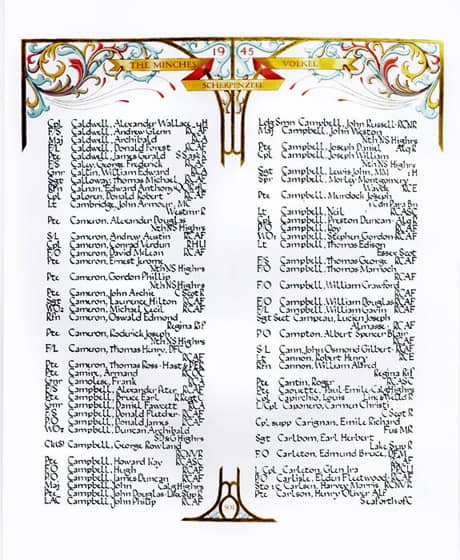 1945
THE MINCHES
VOLKEL
SCHERPENZEEL
Cpl Caldwell, Alexander Wallace
F/S Caldwell, Andrew Glenn RCAF
Maj Caldwell, Archibald RCA
F/S Caldwell, Donald Forest RCAF
Pte Caldwell, James Gerald S Sask R
F/S Caley, George Frederick RCAF
Gnr Callin, William Edward RCA
Sgt Calloway, Thomas Michael RCAF
Rfn Calnan, Edward Anthony
Cpl Caloren, Donald Robert RCAF
Lt Cambridge, John Armour, MC
Westmr R
Pte Cameron, Alexander Douglas
Nth NS Highrs
S/L Cameron, Andrew Austin RCAF
Cpl Cameron, Conrad Verdun RHLI
F/O Cameron, David McLean RCAF
Pte Cameron, Ernest Jerome
Nth NS Highrs
Pte Cameron, Gordon Phillip
Nth NS Highrs
Pte Cameron, John Archie C Scot R
Sgt Cameron, Laurence Hilton RCAF
WO2 Cameron, Michael Cecil RCAF
Rfn Cameron, Oswald Edmond
Regina Rif
Pte Cameron, Roderick Joseph
Nth NS Highrs
F/L Cameron, Thomas Henry, DFC
RCAF
Pte Cameron, Thomas Ross - Hast & PER
Pte Camiré, Armand RMR
Gnr Camolese, Frank RCA
F/O Campbell, Alexander Peter RCAF
Pte Campbell, Bruce Earl R Regt C
Gnr Campbell, Daniel Fawcett RCA
F/S Campbell, Donald Fletcher RCAF
P/O Campbell, Donald James RCAF
WO2 Campbell, Duncan Archibald
SD&G Highrs
Campbell, George Rowland
RCNVR
Pte Campbell, Howard Kay RCASC
F/O Campbell, Hugh RCAF
P/O Campbell, James Duncan RCAF
Maj Campbell, John Calg Highrs
Pte Campbell, John Douglas - Lke Sup R
LAC Campbell, John Philip RCAF
Ldg Smn Campbell, John Russell RCNR
Maj Campbell, John Weston
Nth NS Highrs
Pte Campbell, Joseph Daniel Alq R
Cpl Campbell, Joseph William
Nth NS Highrs
Sgt Campbell, Lewis John, MM
Spr Campbell, Morley Montgomery
RCE
Pte Campbell, Murdock Joseph
1 Cdn Para Bn
Lt Campbell, Neil RCASC
Cpl Campbell, Preston Duncan Alq R
P/O Campbell, Roy RCAF
WO1 Campbell, Stephen Gordon RCAF
Lt Campbell, Thomas Edison
Essex Scot
F/S Campbell, Thomas George RCAF
F/O Campbell, Thomas Marnoch
RCAF
F/O Campbell, William Crawford
RCAF
F/O Campbell, William Douglas RCAF
F/L Campbell, William Gavin RCAF
Sgt Sect Campeau, Lucien Joseph
RCAF
P/O Campton, Albert Spencer Blair
RCAF
S/L Cann, John Osmond Gilbert RCAF
Lt Cannon, Robert Henry RCE
Rfn Cannon, William Alfred
Regina Rif
Pte Cantin, Roger RCASC
Pte Caouette, Paul-Emile Calg Highrs
Cpl Capirchio, Louis Linc & Welld R
L/Cpl Caponero, Carmen Christi
C Scot R
Cpl supp Carignan, Emile Richard
Fus MR
Sgt Carlbom, Earl Herbert
Lake Sup R
F/O Carleton, Edmund Bruce, DFM
RCAF
L/Cpl Carleton, Glen Ira PPCLI
P/O Carlisle, Elden Fleetwood RCAF
Carlsen, Harvey Morris RCNVR
Pte Carlson, Henry Oliver Alf
Seaforth of C